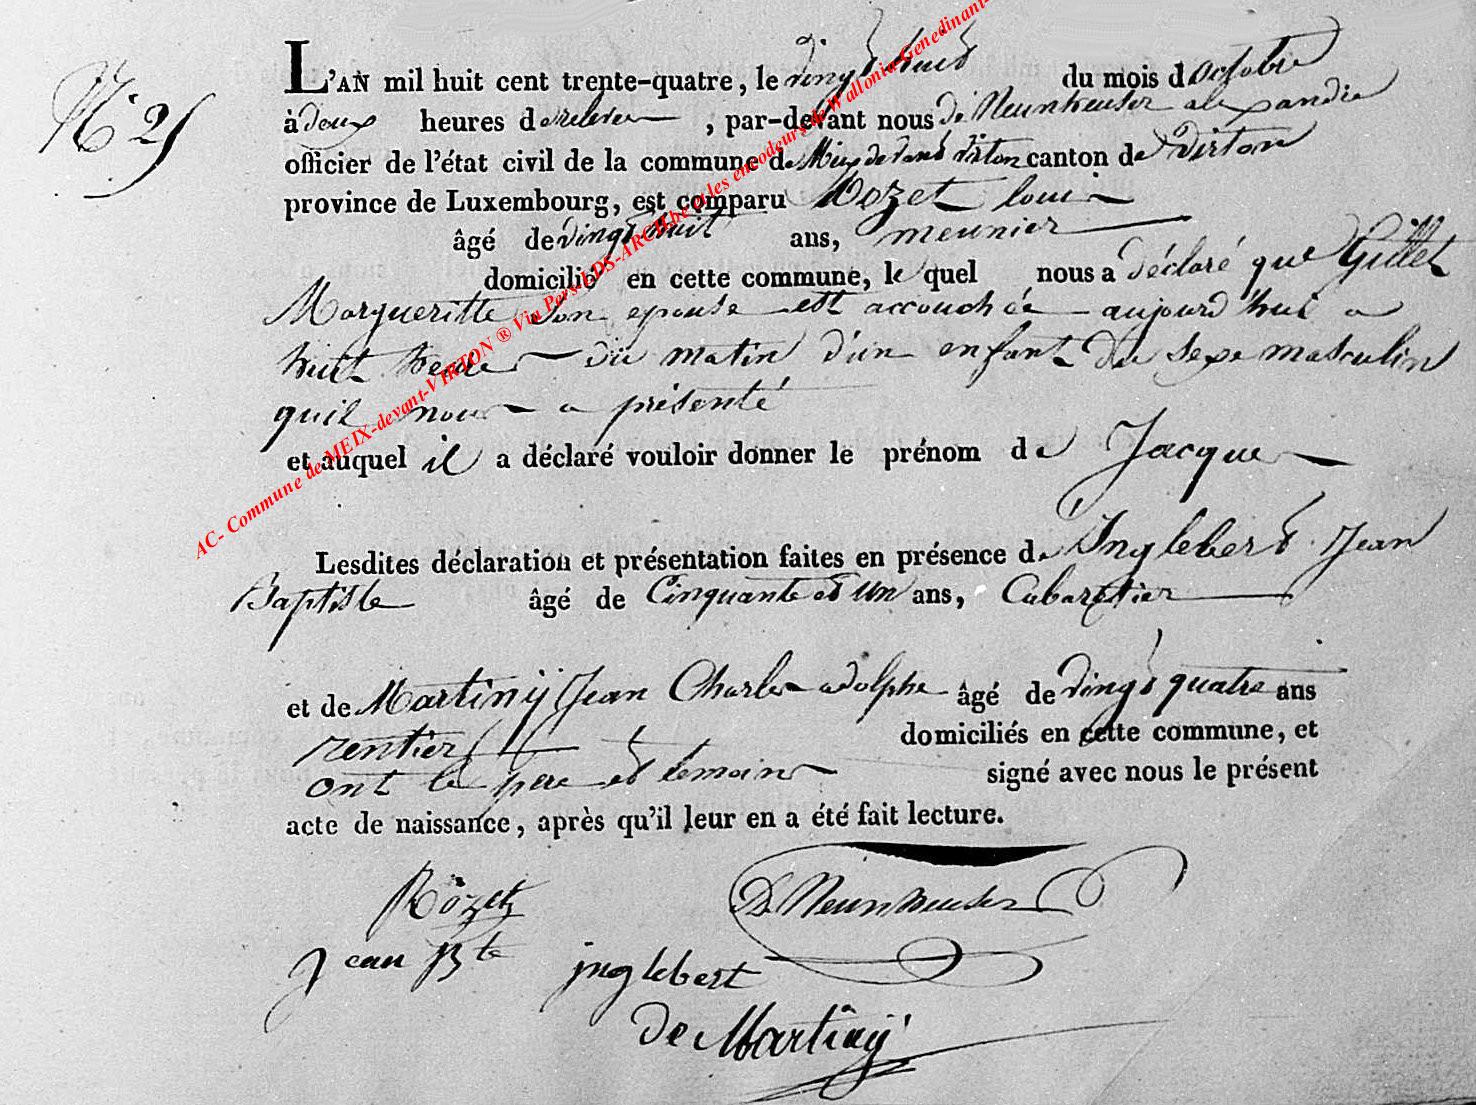 N° 25
L'AN mil huit cent trente-quatre, le vingt huit du mois d'octobre
à deux heures de relevée, par-devant nous de Neunheuser alexandre
officier de l'état civil de la commune de Meix devant virton canton de Virton
province de Luxembourg, est comparu Rozet loui
âgé de vingt huit ans, meunier
domicilié en cette commune, le quel nous a déclaré que Gillet
Margueritte son epouse est accouchée aujourd'hui a
huit heures du matin d'un enfant du sexe masculin
quil nous a présenté
et auquel il a déclaré vouloir donner le prénom de Jacque
Lesdites déclaration et présentation faites en présence de Inglebert Jean
Baptiste âgé de Cinquante et un ans, Cabaretier
et de Martiny Jean Charles adolphe âgé de vingt quatre ans
rentier domiciliés en cette commune, et
ont le pere et temoins signé avec nous le présent
acte de naissance, après qu'il leur en a été fait lecture.
Rozet
De Neunheuser
Jean Bte inglebert
de Martiny
AC- Commune de MEIX-devant-VIRTON ® Via Pers-LDS-ARCH.be et les encodeurs de Wallonia Genedinant-